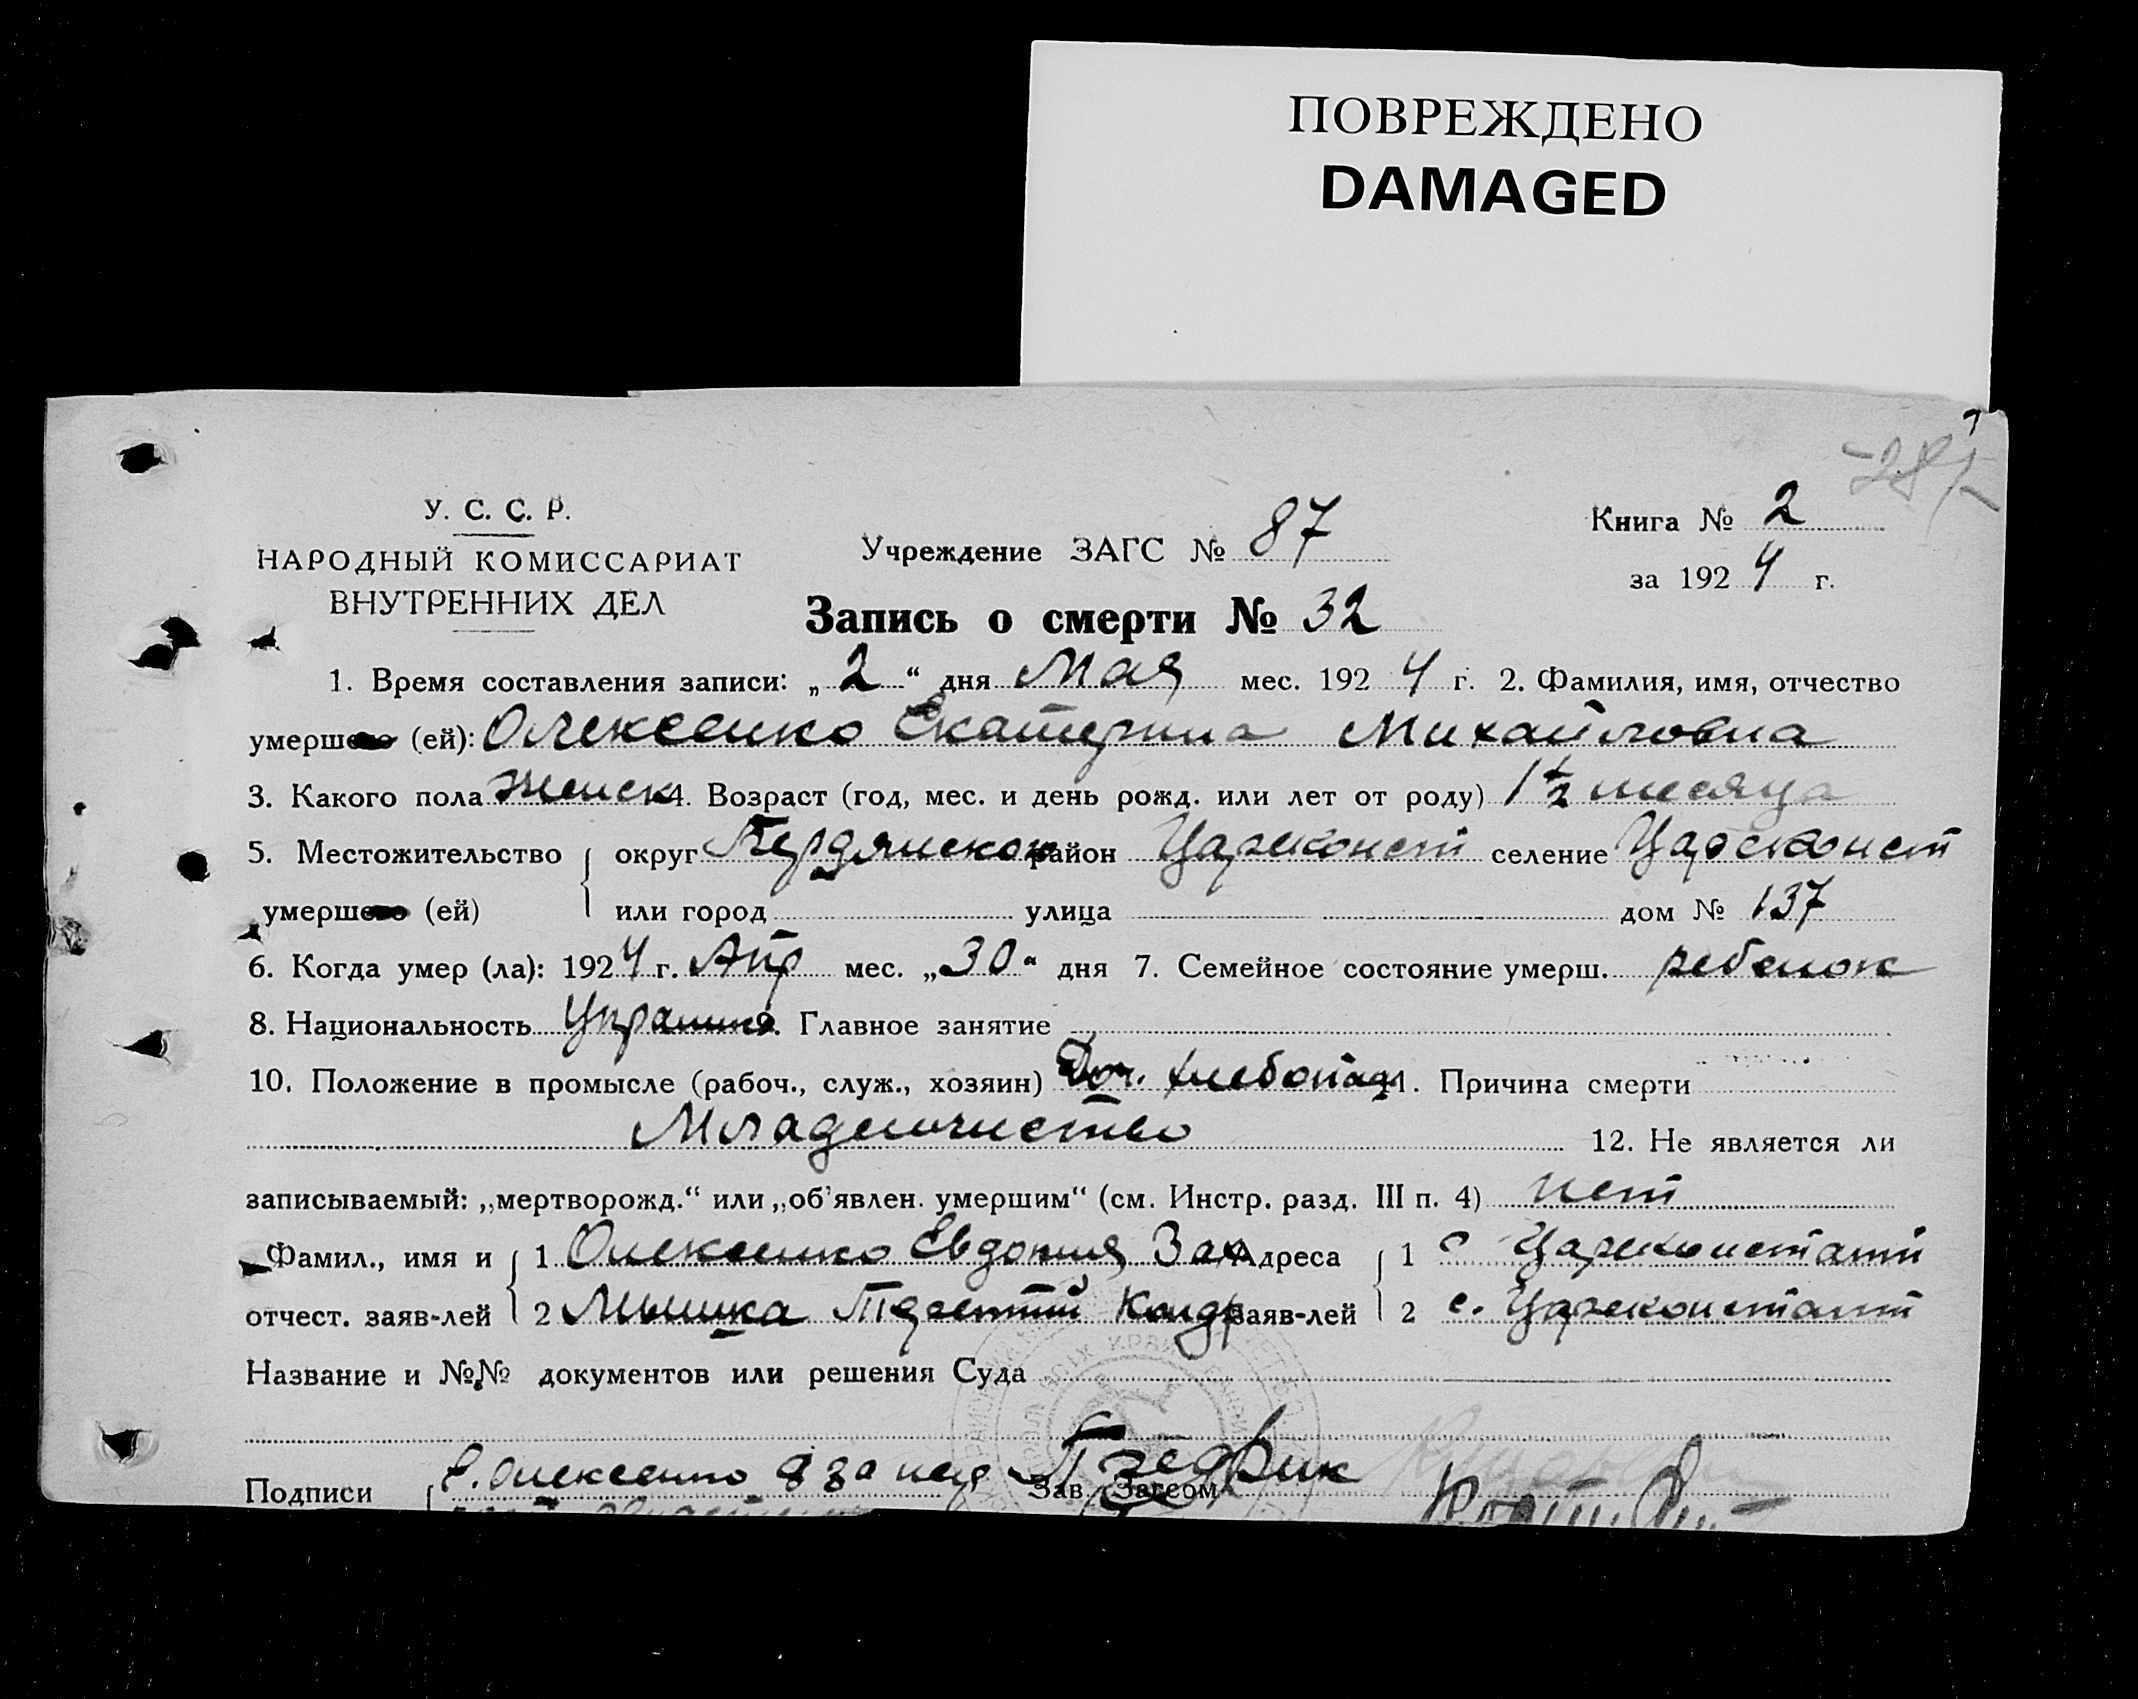 ПОВРЕЖДЕНО
DAMAGED
У. С. С. Р.
НАРОДНЫЙ КОМИССАРИАТ
ВНУТРЕННИХ ДЕЛ
Учреждение ЗАГС № 87
Книга № 2
за 1924 г.
Запись о смерти № 32
1. Время составления записи: „2“ дня Мая мес. 1924 г. 2. Фамилия, имя, отчество
умершего (ей): Олексенко Екатерина Михайловна
3. Какого пола женск 4. Возраст (год, мес. и день рожд. или лет от роду) 1½ месяца
5. Местожительство округ Бердянском район Цареконст селение Цареконст
умершего (ей) или город улица дом № 137
6. Когда умер (ла): 1924 г. Апр мес. „30“ дня 7. Семейное состояние умерш. ребенок
8. Национальность Украин 9. Главное занятие
10. Положение в промысле (рабоч., служ., хозяин) Доч. хлебопаш 11. Причина смерти
Младенчество 12. Не является ли
записываемый: „мертворожд.“ или „об'явлен. умершим“ (см. Инстр. разд. III п. 4) нет
Фамил., имя и 1 Олексенко Евдокия Зах Адреса 1 с Цареконстант
отчест. заяв-лей 2 Мышка Кондр заяв-лей 2 с. Цареконстант
Название и №№ документов или решения Суда
Подписи Е. Олексенко а за нея Зав. Загсом